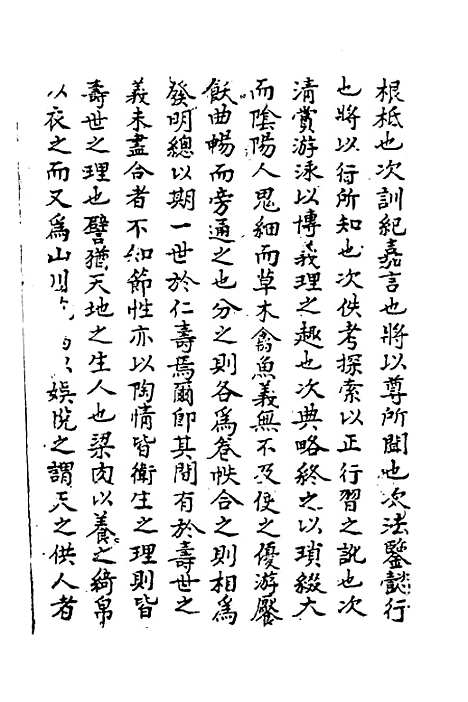 根柢也次訓紀嘉言也將以尊所聞也次法鑒懿行
也將以行所知也次佚考探索以正行習之訛也次
清賞游泳以博義理之趣也次典略終之以瑣綴大
而陰陽人鬼細而草木禽魚義無不及使之優游饜
飫曲暢而旁通之也分之則各爲卷帙合之則相爲
發明總以期一世於仁壽焉爾卽其間有於壽世之
義未盡合者不知節性亦以陶情皆衛生之理則皆
壽世之理也譬猶天地之生人也粱肉以養之綺帛
以衣之而又爲山川 以娛悅之謂天之供人者